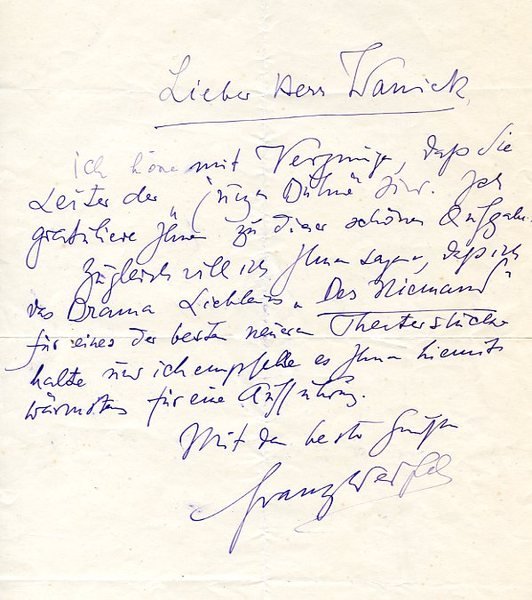 Lieber Herr Warnick
ich höre mit Vergnügen, daß Sie
Leiter der „Jungen Bühne" sind. Ich
gratuliere Ihnen zu dieser schönen Aufgabe.
Zugleich will ich Ihnen sagen, daß ich
das Drama „Der Niemand"
für eines der besten neueren Theaterstücke
halte und ich empfehle es Ihnen hiermit
wärmstens für eine Aufführung.
Mit den besten Grüßen
Franz Werfel